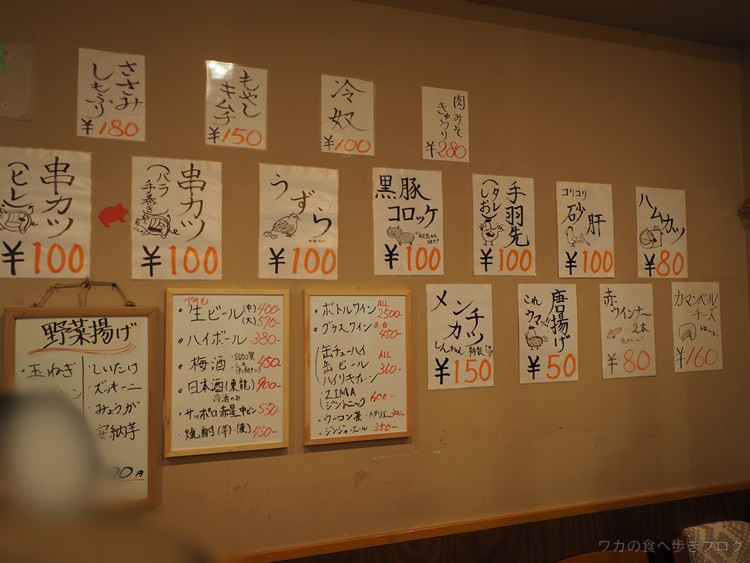 ささみ
しもふり
¥180
もやし
キムチ
¥150
冷奴
¥100
肉みそ
きゅうり
¥280
串カツ
(ヒレ
¥100
串カツ
(バラ
手巻き)
¥100
うずら
¥100
黒豚
コロッケ
¥100
手羽先
(タレ
しお)
¥100
コリコリ
砂肝
¥100
ハムカツ
¥80
メンチ
カツ
¥150
唐揚げ
これ
ウマッ!!
¥50
赤
ウインナー
2本
¥80
カマンベール
チーズ
¥160
野菜揚げ
・玉ねぎ
・しいたけ
・ズッキーニ
・みょうが
・安納芋
00円
・生ビール(中)400-
(大)570-
・ハイボール 380-
・梅酒 450
・日本酒(東龍) 900-
冷酒のみ
・サッポロ赤星中ビン 550-
・焼酎(芋)・(麦) 450-
・ボトルワイン ALL 2500-
・グラスワイン 450-
缶チューハイ ALL
缶ビール 360-
ハイリキプルーン
・ZIMA
ジントニック
・ウーコン茶
・ジンジャエール 350-
ワカの食べ歩きブログ